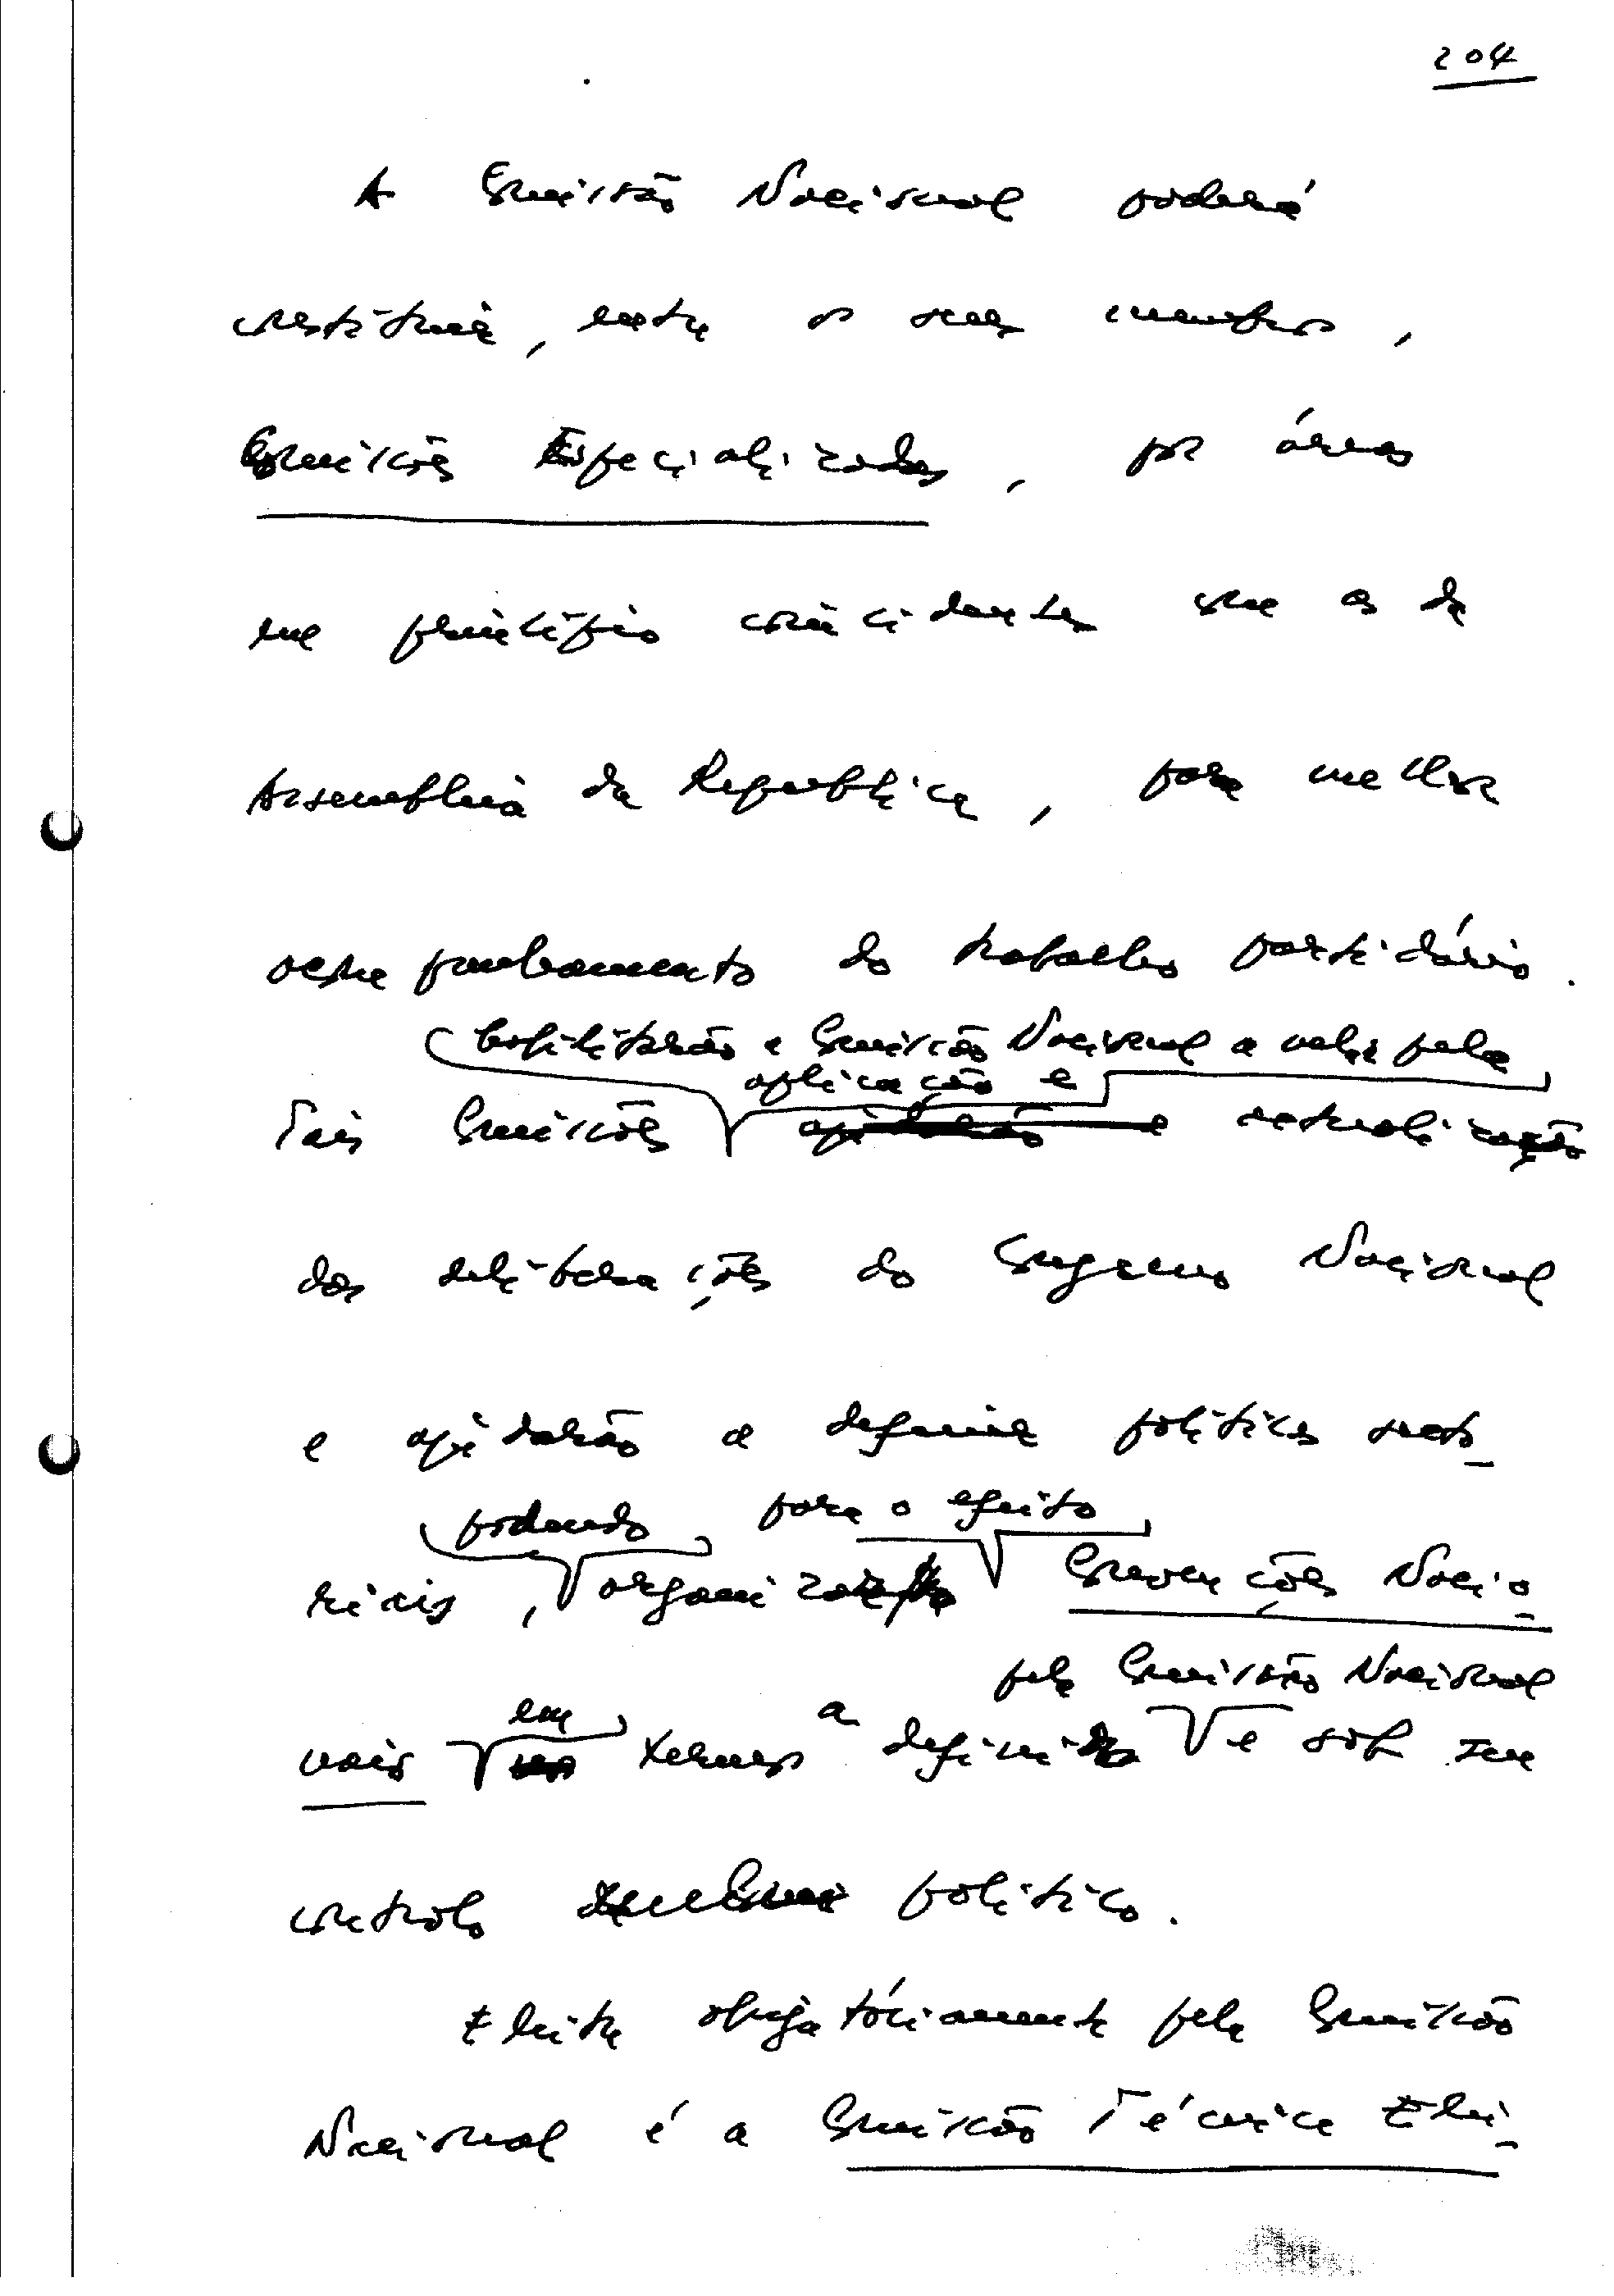 204
A Comissão Nacional poderá
constituir, entre os seus membros,
Comissões Especializadas, por áreas
em princípio coincidentes com as da
Assembleia da República, para melhor
acompanhamento do trabalho partidário.
habilitarão a Comissão Nacional a velar pela
aplicação e
Tais Comissões e actualização
das deliberações do Congresso Nacional
e ajudarão a definir políticas secto-
podendo para o efeito
riais, organizar Convenções Nacio-
pela Comissão Nacional
em a
nais termos definir e sob seu
controlo político.
Eleita obrigatóriamente pela Comissão
Nacional é a Comissão Técnica Elei-